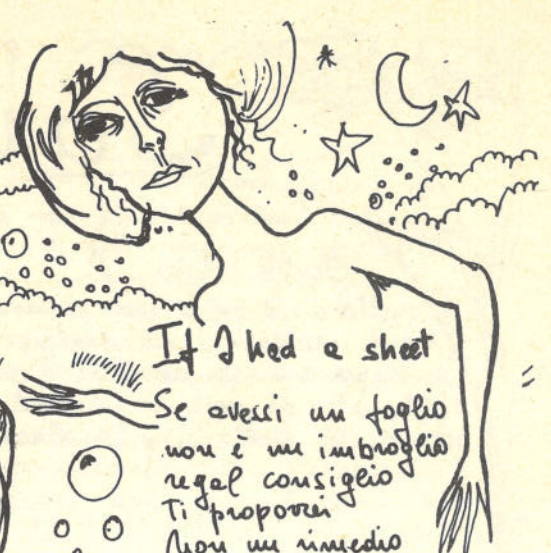 If I had a sheet
Se avessi un foglio
non è un imbroglio
regal consiglio
Ti proporrei
Non un rimedio